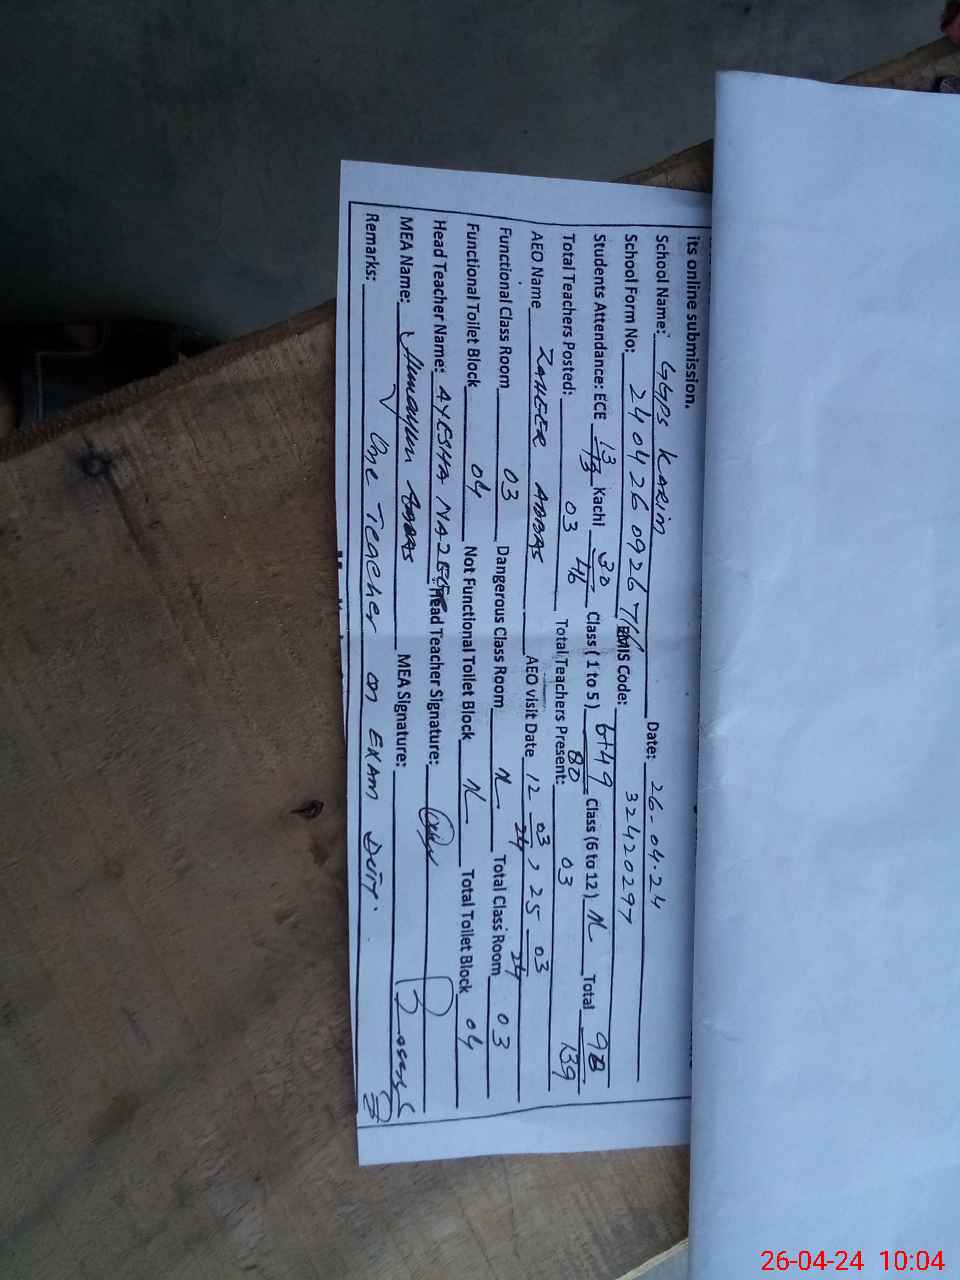 its online submission.
School Name: GGPS KARIM Date: 26-04-24
School Form No: 240426092671 EMIS Code: 32420297
Students Attendance: ECE 13/13 Kachi 30/46 Class (1 to 5) 49/80 Class (6 to 12) N Total 92/139
Total Teachers Posted: 03 Total Teachers Present: 03
AEO Name ZAHEER ABBAS AEO visit Date 12 03/24, 25 03/24
Functional Class Room 03 Dangerous Class Room N Total Class Room 03
Functional Toilet Block 04 Not Functional Toilet Block N Total Toilet Block 04
Head Teacher Name: AYESHA Head Teacher Signature:
MEA Name: Humayun Abbas MEA Signature:
Remarks: One Teacher on EXAM DUTY.
26-04-24 10:04